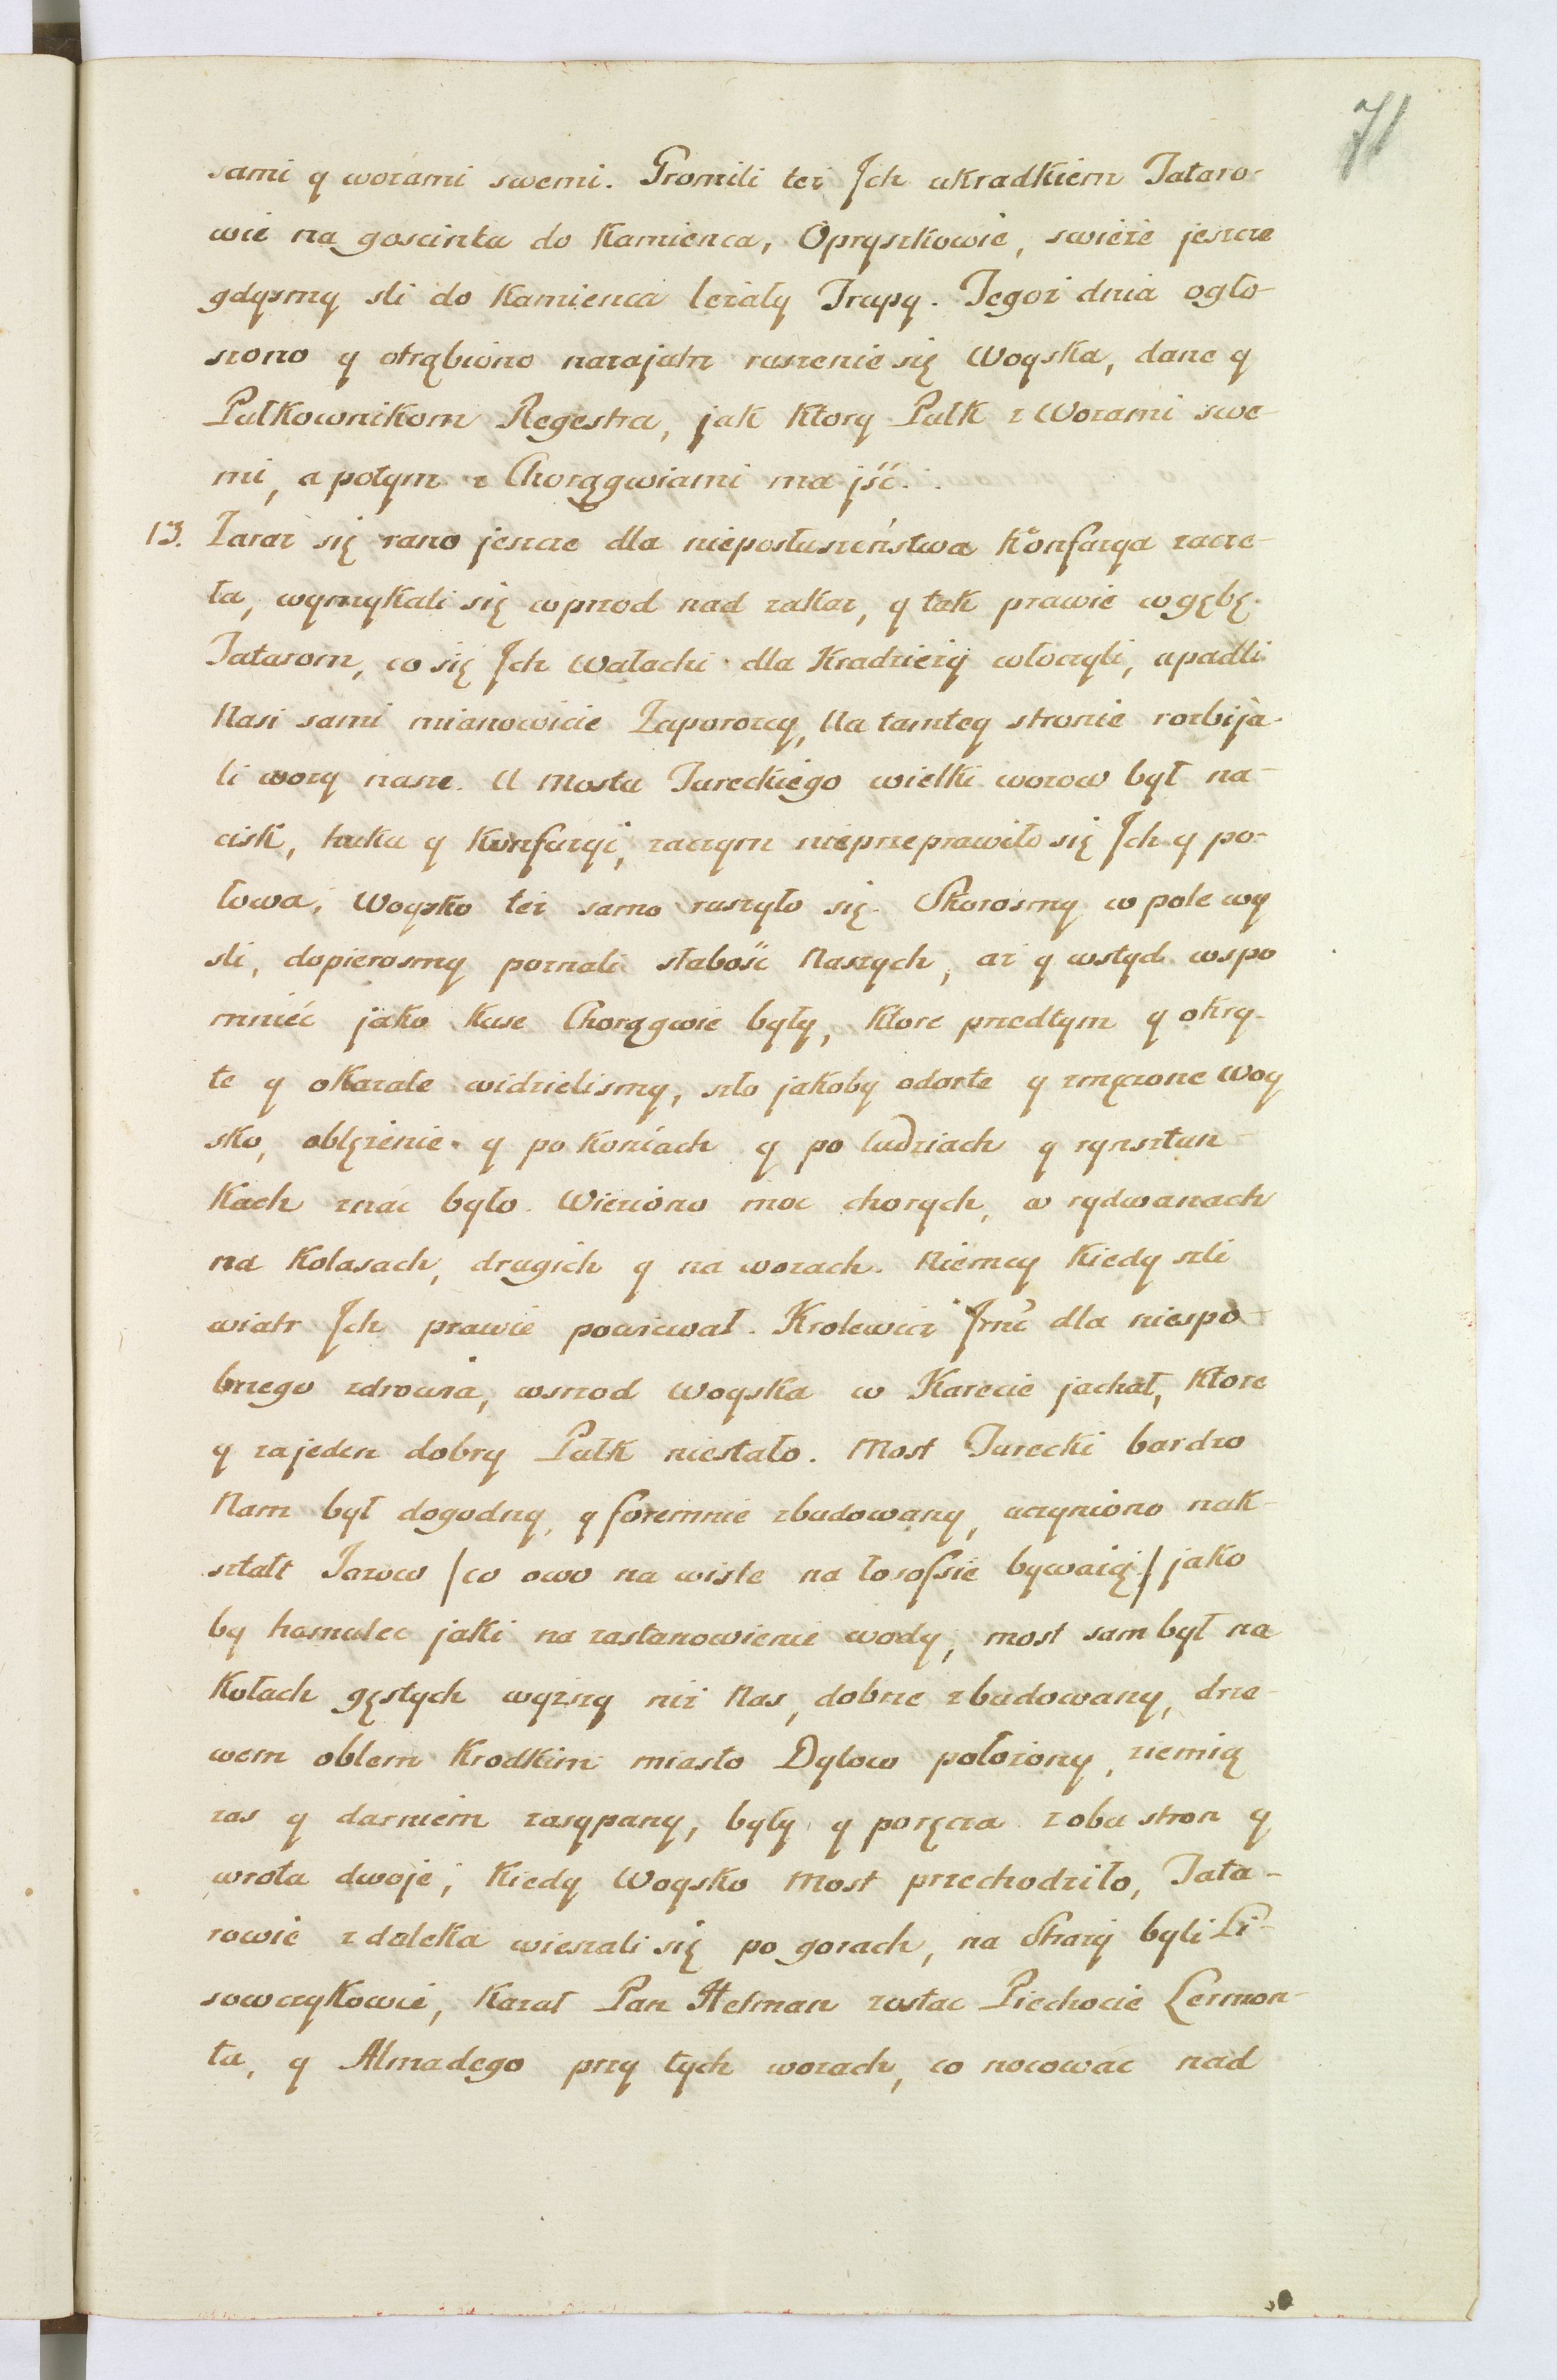 71
sami y wozami swemi. Gromili też Jch ukradkiem Tataro-
wie na goscinta do Kamienca, Opryszkowie, swieże jeszcze
gdysmy sli do Kamienca leżały Trupy. Tegoż dnia ogło-
szono y otrąbiono nazajutrz ruszenie się Woyska, dane y
Pułkownikom Regestra, jak Ktory Pułk z Wozami swe-
mi, a potym z Chorągwiami ma jść.
13. Zaraz się rano jeszcze dla nieposłuszeństwa Konfuzya zacze-
ła, wymykali się wprzod nad zakaz, y tak prawie w gębę
Tatarom, co się Jch Watachi dla Kradzieży włoczyli, upadli
Nasi sami mianowicie Zaporozcy, Na tamtey stronie rozbija-
li wozy nasze. U Mostu Tureckiego wielki wozow był na-
cisk, huku y Kunfuzyi, zaczym nieprzeprawiło się Jch y po-
łowa, Woysko też samo ruszyło się. Skorosmy w pole wy
sli, dopierosmy poznali słabość Naszych, aż y wstyd wspo
mnieć jako Kuse Chorągwie były, Ktore przedtym y okry-
te y okazałe widzielismy, szło jakoby odarte y zmęczone Woy
sko, oblężenie y po Koniach y po ludziach y rynsztun-
Kach znać było. Wieziono moc chorych, w rydwanach
na Kolasach, drugich y na wozach. Niemcy Kiedy szli
wiatr Jch prawie powiewał. Krolewicz Jmć dla niespo-
bnego zdrowia, wsrzod Woyska w Karecie jachał, Ktore
y zajeden dobry Pułk niestało. Most Turecki bardzo
Nam był dogodny, y foremnie zbudowany, uczyniono nak-
ształt Jazow / co owo na wisle na łosossie bywaią / jako
by hamulec jaki na zastanowienie wody, most sam był na
Kołach gęstych wyższy niż Nas, dobrze zbudowany, drze-
wem oblem Krodkim miasto Dylow położony, ziemią
zas y darniem zasypany, były y poręcza z obu stron y
wrota dwoje; Kiedy Woysko Most przechodziło, Tata-
rowie z daleka wieszali się po gorach, na Straży byli Li-
sowczykowie, Kazał Pan Hetman zostac Piechocie Lermon-
ta, y Almadego przy tych wozach, co nocować nad